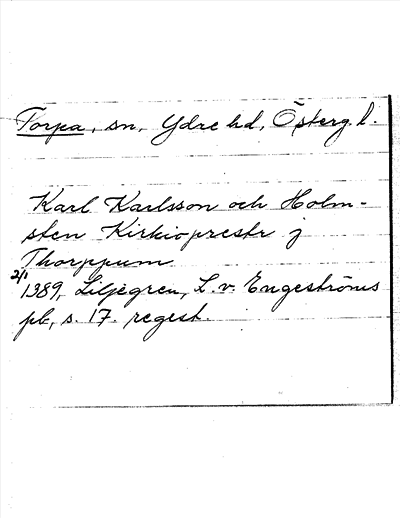 Torpa, sn, Ydre hd, Österg. l.
Karl Karlsson och Holm-
sten Kirkioprestr j
Thorppum
2/1
1389, Liljegren, L. v. Engeströms
pb, s. 17. regest.